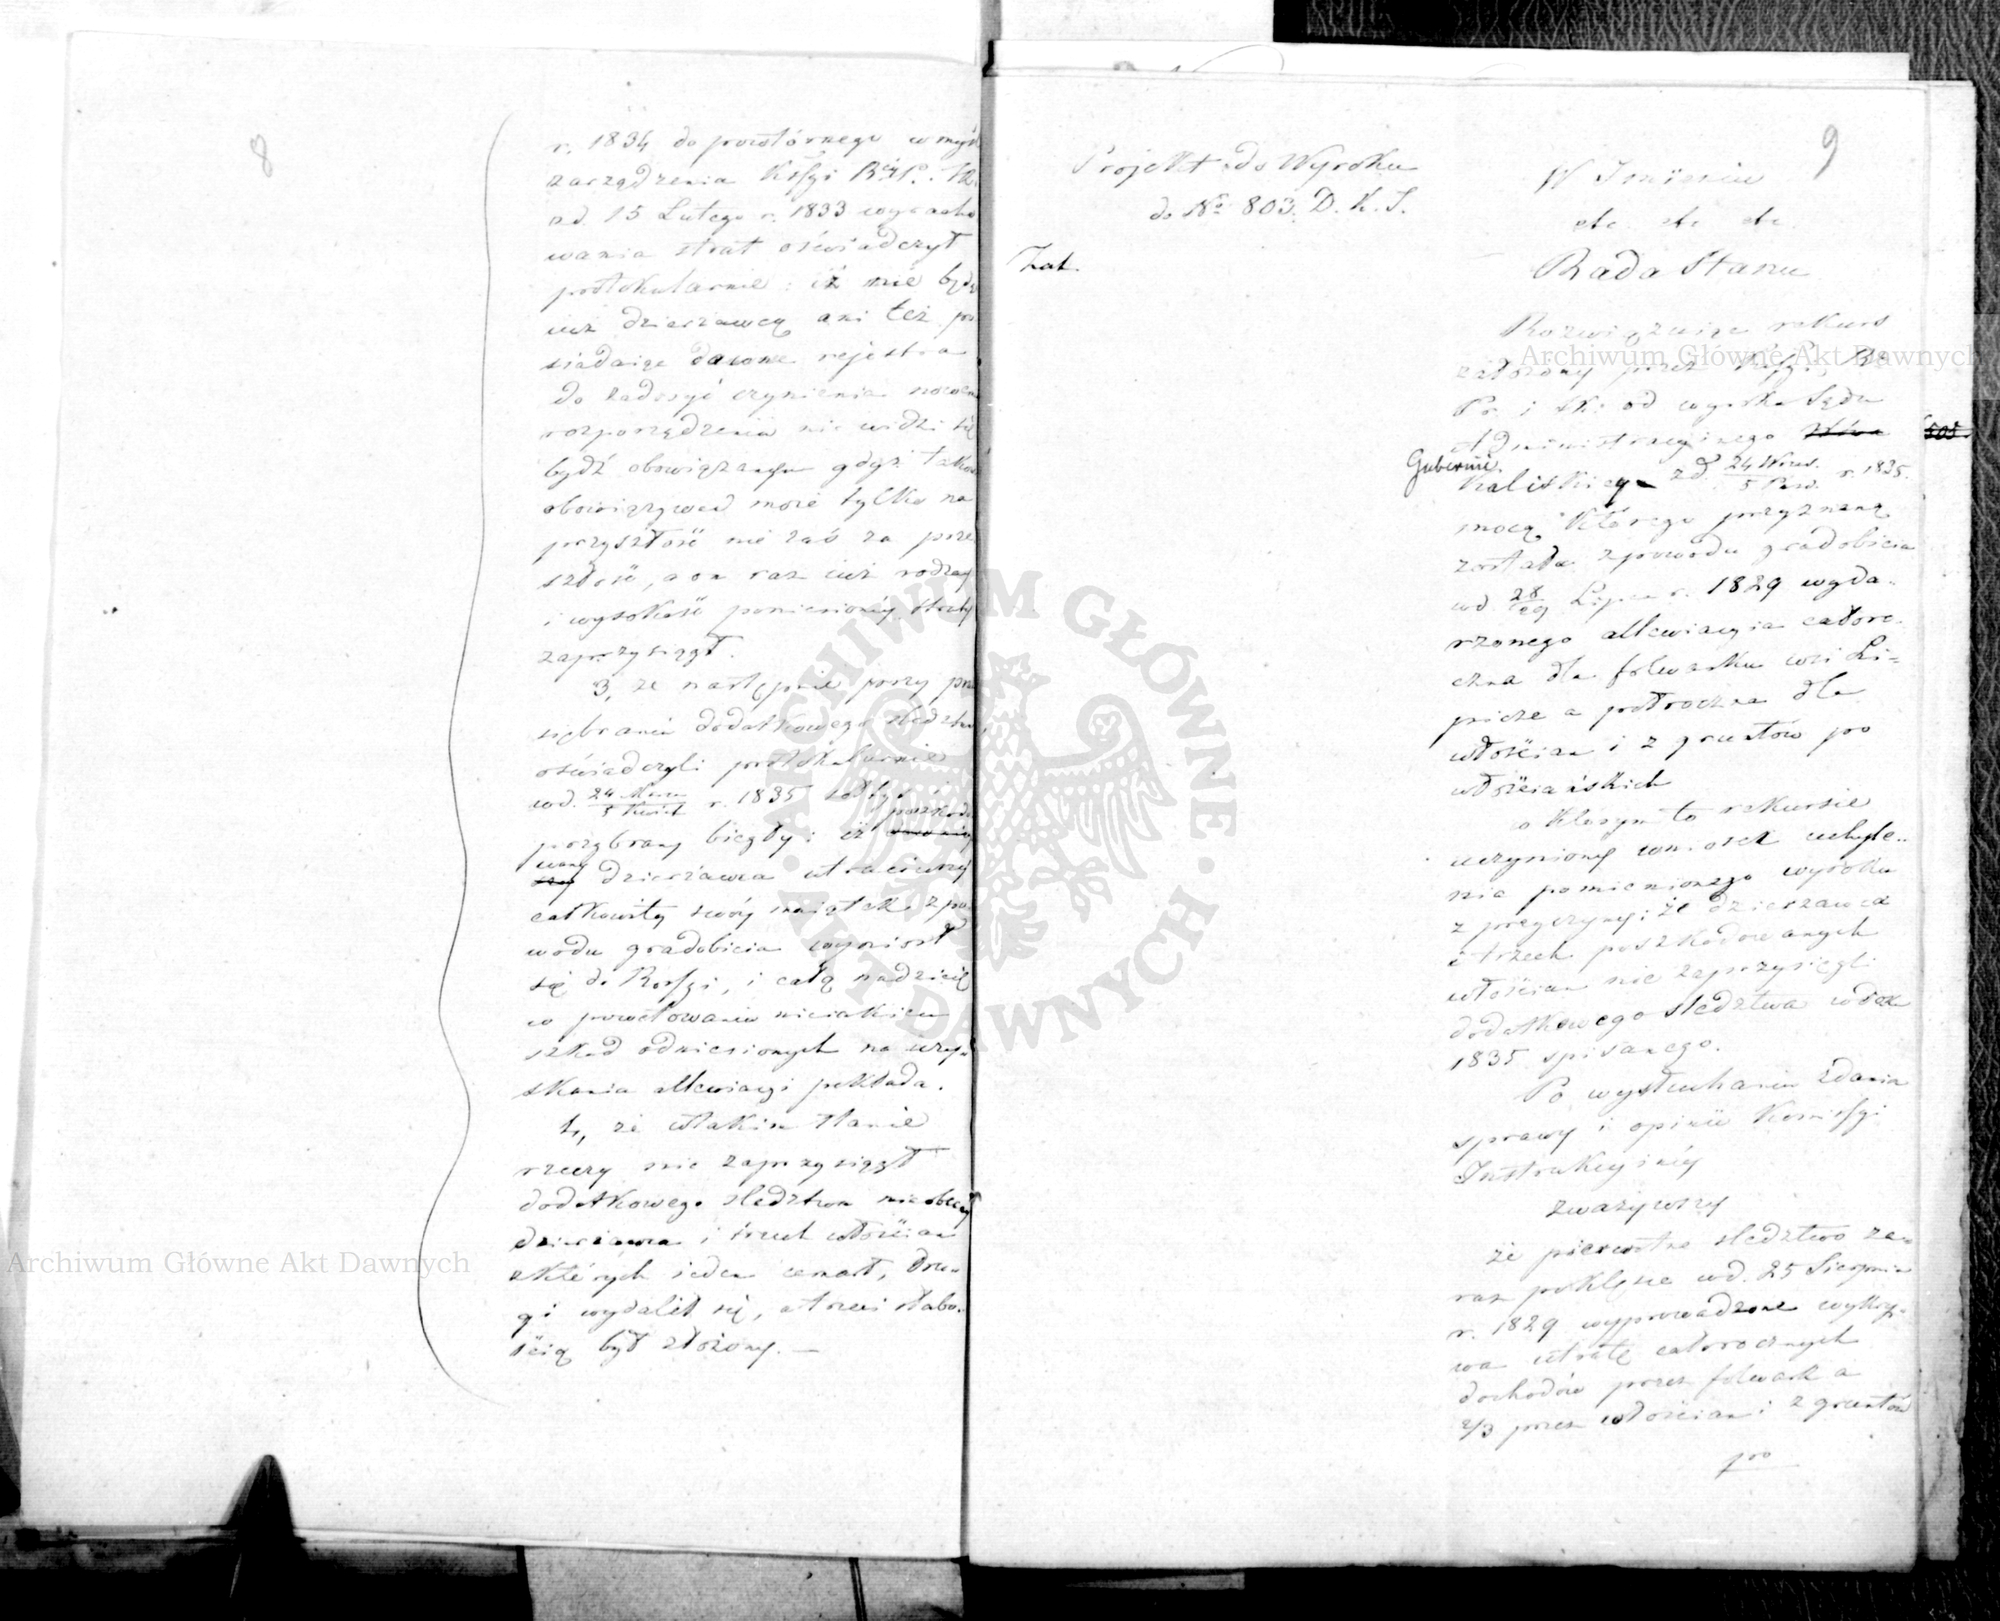 8
r. 1834 do powtórnego w myśl
zarządzenia Kssyi
z d. 15 Lutego r. 1833 wyracho
wania strat oświadczył
protokularnie: iż nie będąc
iuż dzierżawcą ani też po
siadaiąc dawne rejestra
do zadosyć czynienia nowemu
rozporządzeniu nie widzi się
bydź obowiązanym gdyż takowe
obowiązywać może tylko na
przyszłość nie zaś za prze
szłość, a on raz iuż rodzay
i wysokość poniesionéy straty
zaprzysiągł.
3, że następnie przy przed
sięebraniu dodatkowego śledztwa
oświadczyli protokularnie
w d. 24 Marca / 5 Kwiet r. 1835
poszkodo
przybrany biegły: iż
wany
dzierżawca utraciwszy
całkowity swóy maiątek z po
wodu gradobicia wyniósł
się do Rossyi, i całą nadzieię
w powetowaniu nieiakiem
szkod odniesionych na uzy
skaniu allewiacyi pokłada.
4, że w takim stanie
rzeczy nie zaprzysiągł
dodatkowego śledztwa nieobecny
dzierżawca i trzech włościan
z których ieden umarł, dru-
gi wydalił się, a trzeci słabo-
ścią był złożony. —
9
Projekt do Wyroku
do No 803. D. K. I.
Zał.
W Imieniu
etc. etc. etc.
Rada Stanu
Rozwiązuiąc rekurs
założony przez Kssyę
Pr. i Sk: od wyroku Sądu
Administracyjnego
505.
Gubernii.
Kaliskiego z d. 24 Wrześ. / 5 Paźd. r. 1835.
mocą którego przyznaną
została z powodu gradobicia
w d. 28/29 Lipca r. 1829 wyda-
rzonego allewiacyia całoro-
czna dla folwarku wsi Li-
picze a półroczna dla
włościan i z gruntów po
włościańskich
w którym to rekursie
uczyniony wniosek uchyle-
nie pomienionego wyroku
z przyczyny: że dzierżawca
i trzech poszkodowanych
włościan nie zaprzysięgli
dodatkowego śledztwa w roku
1835 spisanego.
Po wysłuchaniu zdania
sprawy i opinii Komissyi
Instrukcyinéy
zważywszy
że pierwotne śledztwo za-
raz po klęsce w d. 25 Sierpnia
r. 1829 wyprowadzone wykry-
wa utratę całorocznych
dochodów przez folwark a
2/3 przez włościan i z gruntów
po
Archiwum Główne Akt Dawnych
Archiwum Główne Akt Dawnych
ARCHIWUM GŁÓWNE · AKT DAWNYCH ·